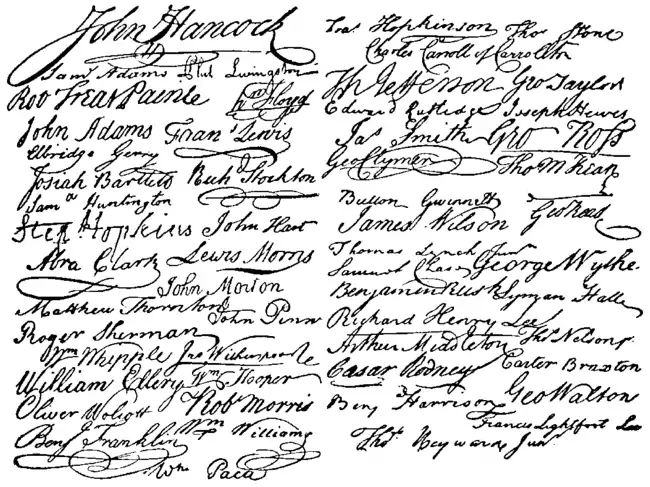 John Hancock
Saml Adams Phil Livingston
Rob Treat Paine Wm Floyd
John Adams Frans Lewis
Elbridge Gerry
Josiah Bartlett Richd Stockton
Saml Huntington
Step Hopkins John Hart
Abra Clark Lewis Morris
John Morton
Matthew Thornton John Penn
Roger Sherman
Wm Whipple Jno Witherspoon
William Ellery Wm Hooper
Oliver Wolcott Robt Morris
Benj Franklin Wm Williams
Wm Paca
Fras Hopkinson Thos Stone
Charles Carroll of Carrollton
Th Jefferson Geo Taylor
Edward Rutledge Joseph Hewes
Jas Smith Geo Ross
Geo Clymer Tho M Kean
Button Gwinnett Geo Read
James Wilson
Thomas Lynch Junr
Samuel Chase George Wythe
Benjamin Rush Lyman Hall
Richard Henry Lee
Arthur Middleton Thos Nelson jr
Caesar Rodney Carter Braxton
Benj Harrison Geo Walton
Francis Lightfoot Lee
Thos Heyward Junr